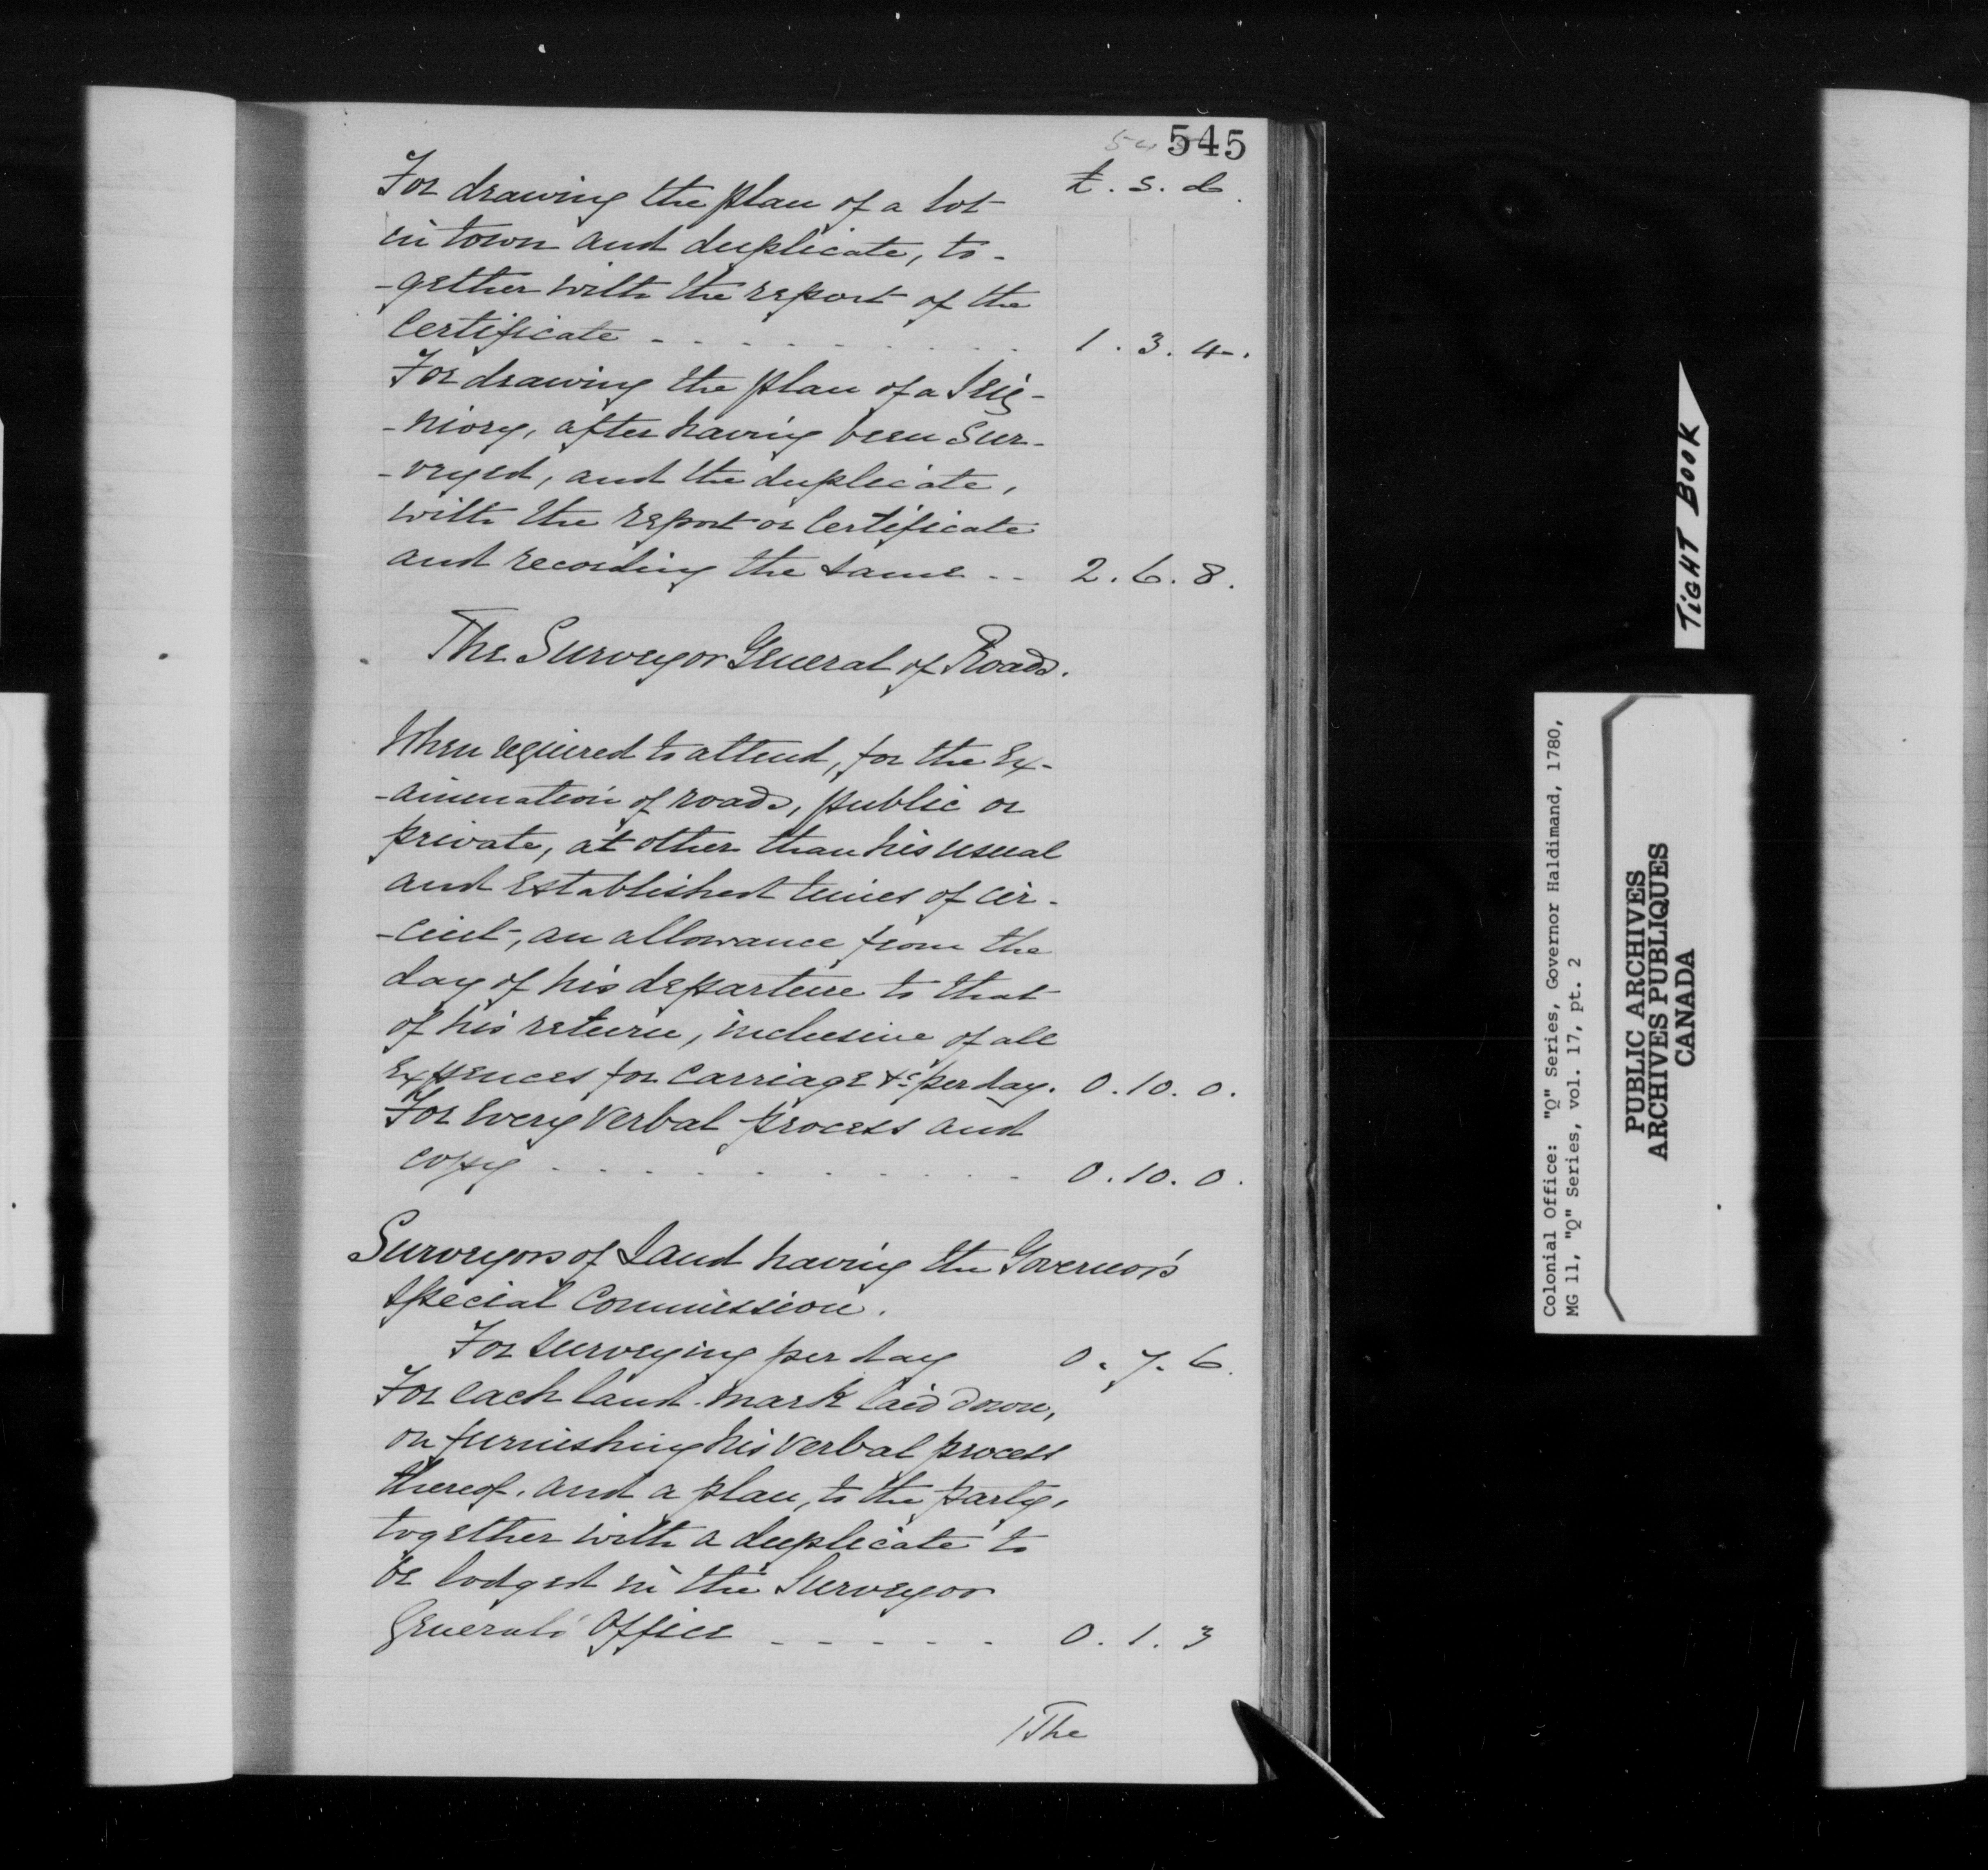 545
£. s. d.
For drawing the plan of a lot
in town and duplicate, to-
-gether with the report of the
Certificate - - - - - - - - 1. 3. 4.
For drawing the plan of a Seig-
-niory, after having been Sur-
-veyed, and the duplicate,
with the report or Certificate
and recording the same - - 2. 6. 8.
The Surveyor General of Roads.
When required to attend, for the Ex-
-amination of roads, public or
private, at other than his usual
and Established times of cir-
-cuit, an allowance from the
day of his departure to that
of his return, inclusive of all
Expences for Carriage &c per day. 0. 10. 0.
For Every Verbal process and
copy - - - - - - - - 0. 10. 0.
Surveyors of Land having the Governor's
Special Commission.
For surveying per day 0. 7. 6.
For each land-mark laid down,
on furnishing his verbal process
thereof, and a plan, to the party,
together with a duplicate to
be lodged in the Surveyor
General's Office - - - - - 0. 1. 3
/The
TIGHT BOOK
Colonial Office: "Q" Series, Governor Haldimand, 1780,
MG 11, "Q" Series, vol. 17, pt. 2
PUBLIC ARCHIVES
ARCHIVES PUBLIQUES
CANADA